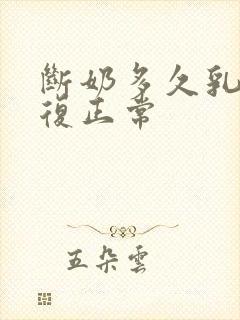 斷奶多久乳
復正常
五朵雲